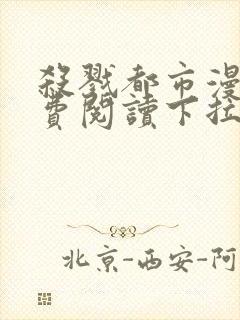 殺戮都市漫
費閱讀下拉
北京-西安-阿